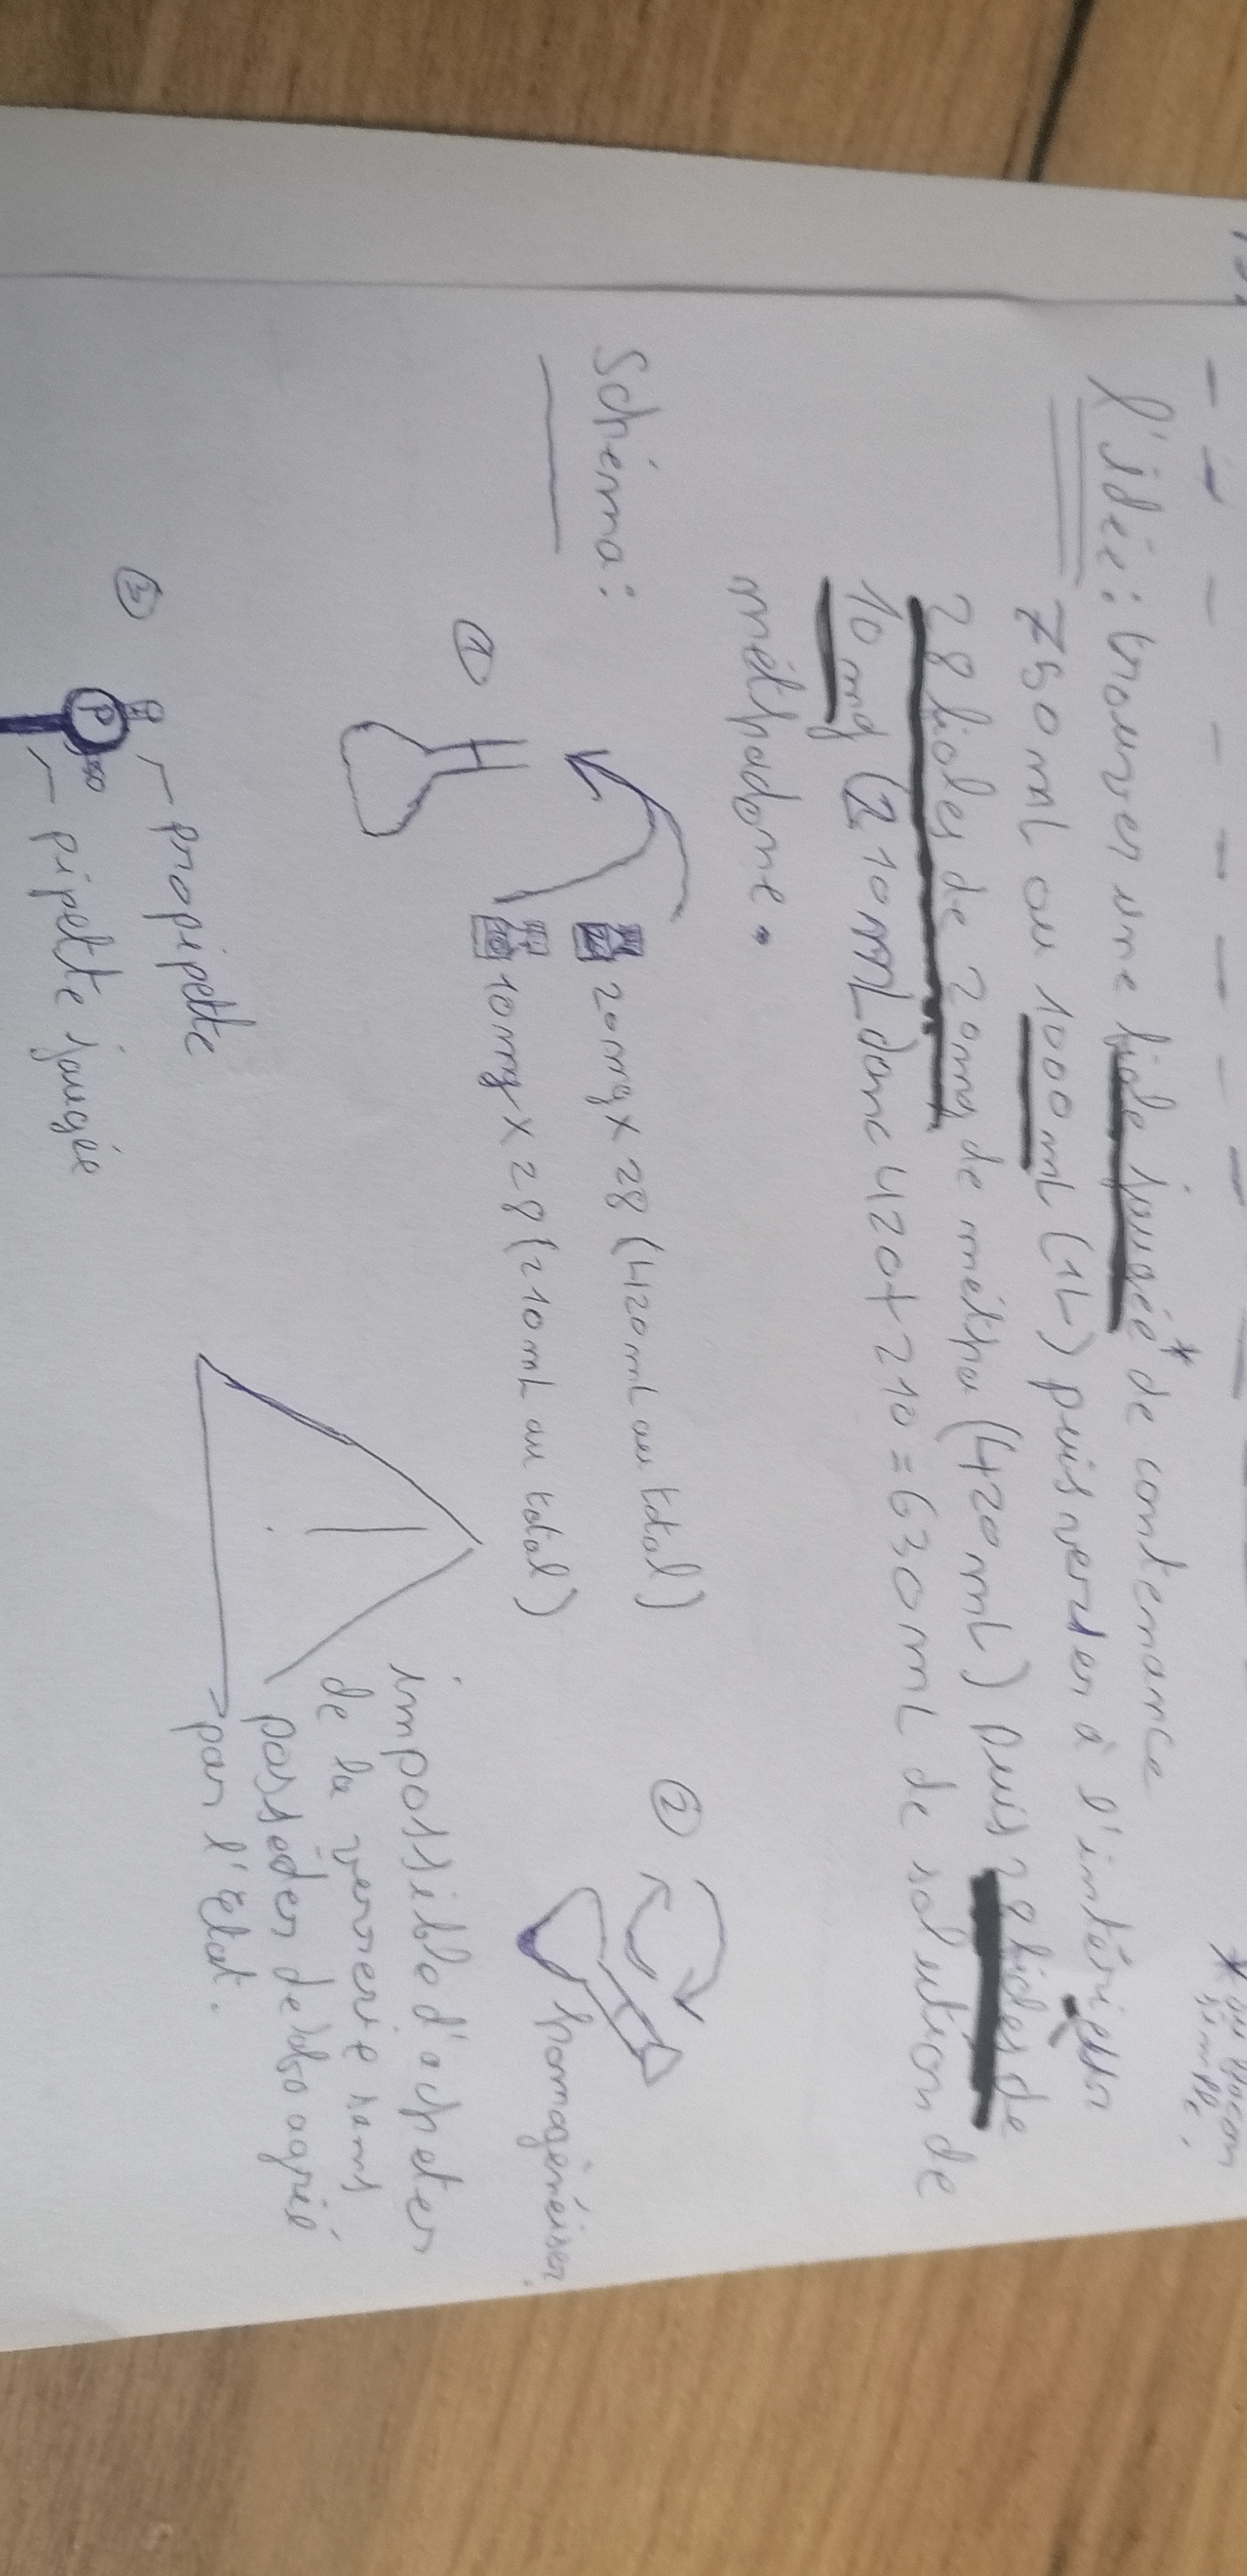 * ou flacon
simple.
l'idée : trouver une fiole jaugée* de contenance
750 mL ou 1000 mL (1L) puis verser à l'intérieur
28 fioles de 20mg de métha (420 mL) puis 28 fioles de
10 mg (210 mL donc 420 + 210 = 630 mL de solution de
méthadone.
Schéma :
20mg x 28 (420 mL au total)
10mg x 28 (210 mL au total)
①
②
homogénéiser.
impossible d'acheter
de la verrerie sans
posséder de labo agréé
par l'Etat.
③
propipette
P
pipette jaugée